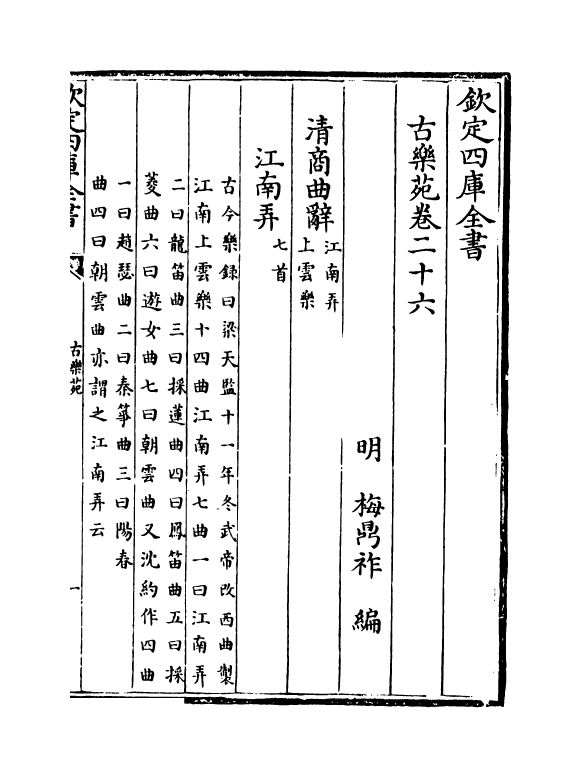 欽定四庫全書
古樂苑卷二十六
明 梅鼎祚 編
清商曲辭
江南弄
上雲樂
江南弄
七首
古今樂録曰梁天監十一年冬武帝改西曲製
江南上雲樂十四曲江南弄七曲一曰江南弄
二曰龍笛曲三曰採蓮曲四曰鳳笛曲五曰採
菱曲六曰遊女曲七曰朝雲曲又沈約作四曲
一曰趙瑟曲二曰秦箏曲三曰陽春
曲四曰朝雲曲亦謂之江南弄云
欽定四庫全書
古樂苑
一